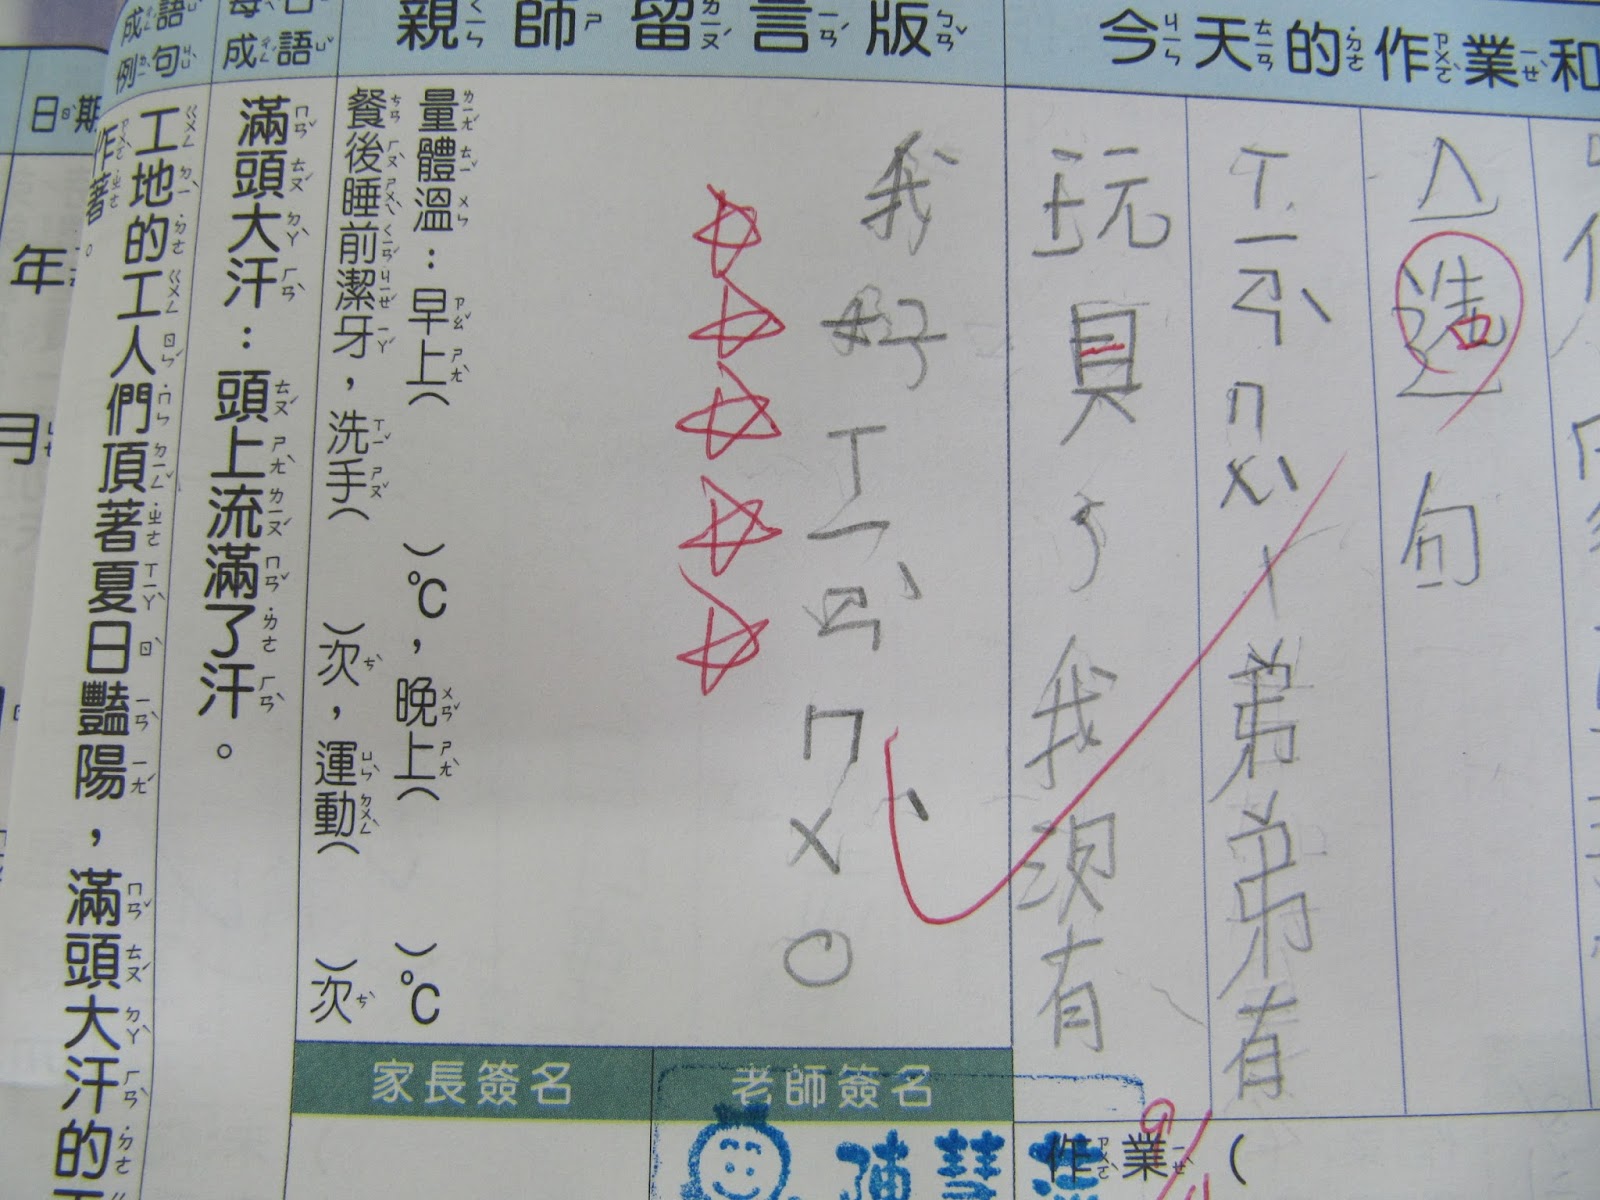 今天的作業和
△造句
ㄒㄧㄢˋㄇㄨˋ弟弟有
玩具，我沒有
親師留言版
我好ㄒㄧㄢˋㄇㄨˋ。
量體溫：早上( )℃，晚上( )℃
餐後睡前潔牙，洗手( )次，運動( )次
每日
成語
滿頭大汗：頭上流滿了汗。
成語
例句
工地的工人們頂著夏日豔陽，滿頭大汗的工
作著。
日期
年
月
家長簽名
老師簽名
陳慧
作業(